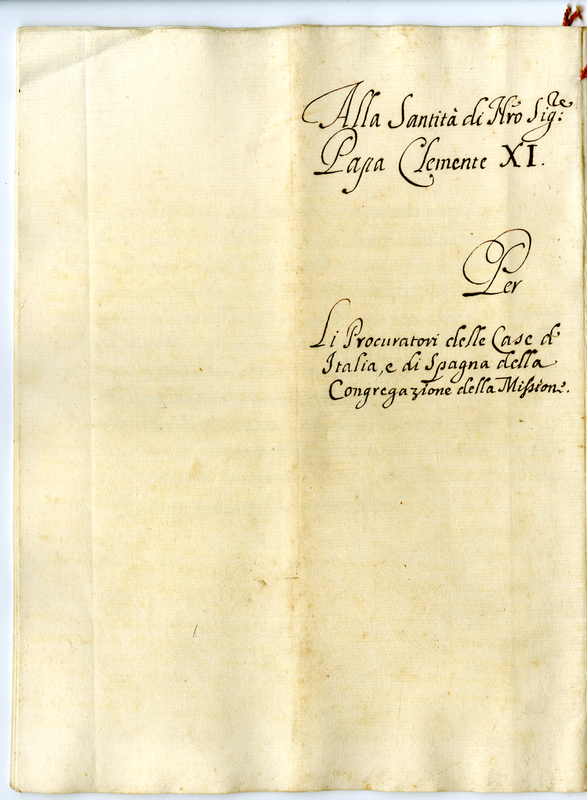 Alla Santità di Nro Sig:re
Papa Clemente XI.
Per
Li Procuratori delle Case d'
Italia, e di Spagna della
Congregazione della Missione.